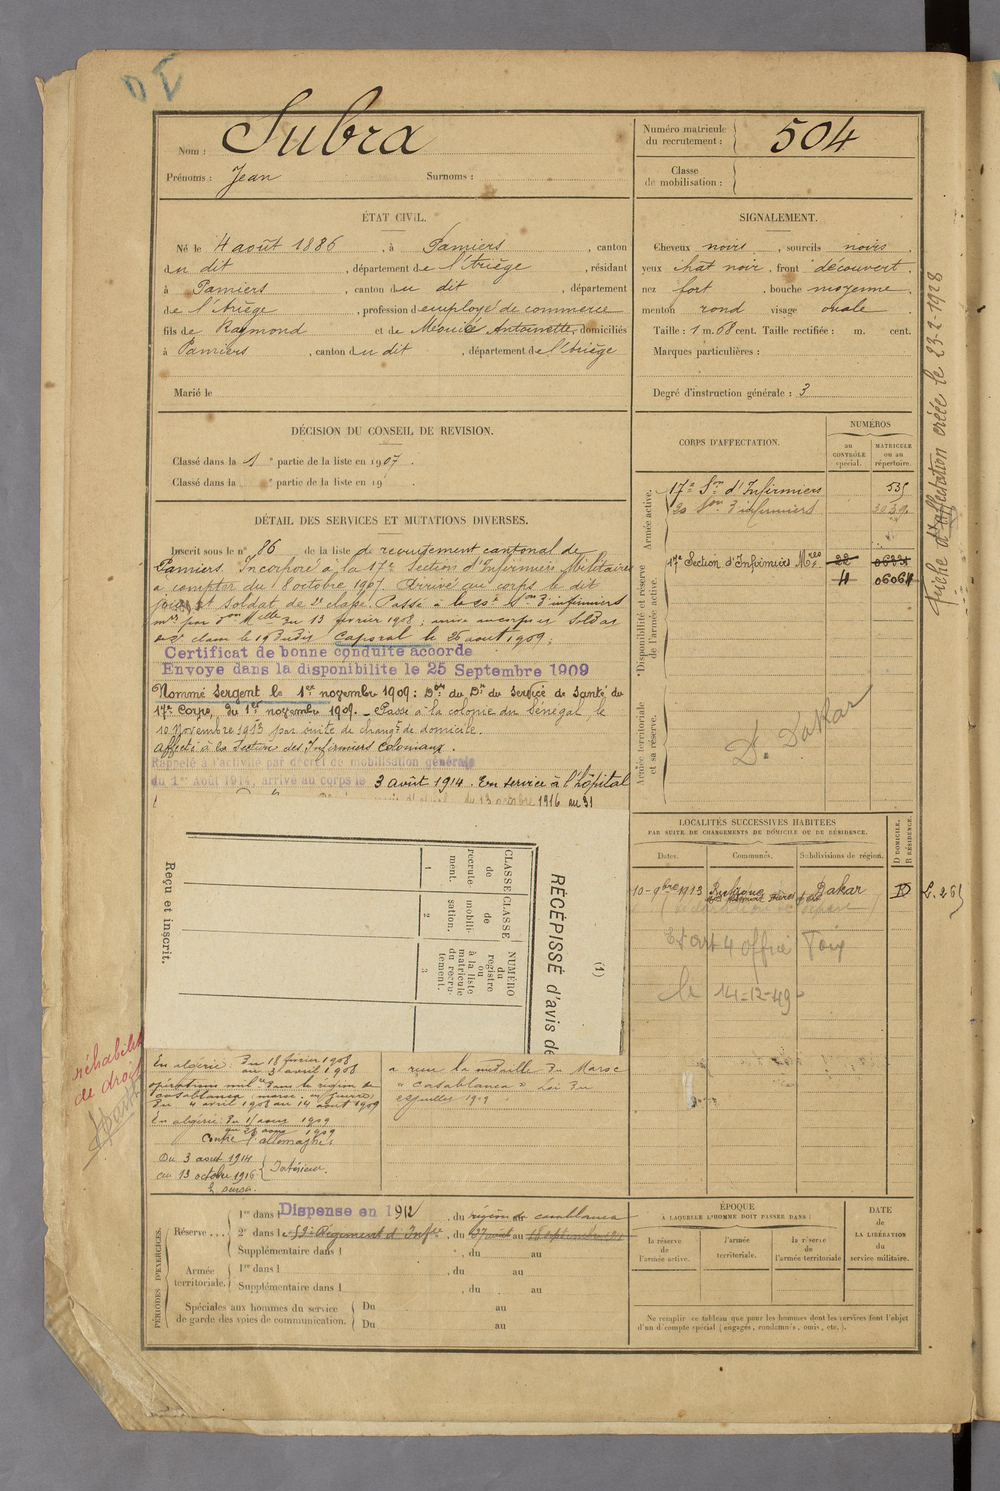 Nom : Subra
Prénoms : Jean Surnoms :
Numéro matricule du recrutement : 504
Classe de mobilisation :
ÉTAT CIVIL.
Né le 4 août 1886, à Pamiers, canton
du dit, département de l'Ariège, résidant
à Pamiers, canton du dit, département
de l'Ariège, profession d'employé de commerce
fils de Raymond et de Antoinette, domiciliés
à Pamiers, canton du dit, département de l'Ariège
Marié le
SIGNALEMENT.
Cheveux noirs, sourcils noirs
yeux chat noir, front découvert,
nez fort, bouche moyenne
menton rond visage ovale
Taille : 1 m. 68 cent. Taille rectifiée : m. cent.
Marques particulières :
Degré d'instruction générale : 3
DÉCISION DU CONSEIL DE REVISION.
Classé dans la 1e partie de la liste en 1907.
Classé dans la e partie de la liste en 19
DÉTAIL DES SERVICES ET MUTATIONS DIVERSES.
Inscrit sous le n° 86 de la liste de recrutement cantonal de
Pamiers. Incorporé à la 17e Section d'Infirmiers Militaires
à compter du 8 octobre 1907. Arrivé au corps le dit
jour, soldat de 2e classe. Passé à la 20e Son d'infirmiers
du 13 février 1908; arrivé au corps et Soldat
Caporal le 26 août 1909;
Certificat de bonne conduite accordé
Envoyé dans la disponibilité le 25 Septembre 1909
Nommé Sergent le 1er novembre 1909 : Don du Dr du Service de Santé du
17e Corps, du 1er novembre 1909. Passé à la colonie du Sénégal le
10 Novembre 1913 par suite de changt de domicile.
Affecté à la Section des Infirmiers Coloniaux.
Rappelé à l'activité par décret de mobilisation générale
du 1er Août 1914, arrivé au corps le 3 août 1914. En service à l'hôpital
du 13 octobre 1916 au 31
CORPS D'AFFECTATION.
NUMÉROS
au CONTRÔLE spécial.
MATRICULE ou au répertoire.
Armée active.
17e Son d'Infirmiers 535
20 Son d'infirmiers
Disponibilité et réserve de l'armée active.
17e Section d'Infirmiers Mres 22
4 06064
Armée territoriale et sa réserve.
D. Dakar
Fiche d'affectation créée le 23-2-1928
LOCALITÉS SUCCESSIVES HABITÉES
PAR SUITE DE CHANGEMENTS DE DOMICILE OU DE RÉSIDENCE.
Dates. Communes. Subdivisions de région. D DOMICILE. R RÉSIDENCE.
10-9bre 1913 Dakar D
L. 26
Etart 4 office Foix
le 14-12-49
RÉCÉPISSÉ d'avis de
(1)
CLASSE de recrutement. 1
CLASSE de mobilisation. 2
NUMÉRO du registre ou à la liste matricule du recrutement. 3
Reçu et inscrit.
réhabilité
de droit
En algérie : Du 18 février 1908
au 3 avril 1908
opérations milres dans la région de
Casablanca, maroc, en guerre
Du 4 avril 1908 au 14 août 1909
En algérie : Du 15 août 1909
au 25 août 1909
Contre l'allemagne
Du 3 août 1914
au 13 octobre 1916 Intérieur.
a reçu la médaille du Maroc
« Casablanca » Loi du
juillet 1909
PÉRIODES D'EXERCICES.
Réserve...
1re dans l Dispensé en 1912, du région de casablanca
2e dans le 59e Régiment d'Infie, du 27 août au 18 septembre
Supplémentaire dans l , du au
Armée territoriale.
1re dans l , du au
Supplémentaire dans l , du au
Spéciales aux hommes du service de garde des voies de communication.
Du au
Du au
ÉPOQUE
À LAQUELLE L'HOMME DOIT PASSER DANS :
la réserve de l'armée active.
l'armée territoriale.
la réserve de l'armée territoriale
DATE de LA LIBÉRATION du service militaire.
Ne remplir ce tableau que pour les hommes dont les services font l'objet
d'un décompte spécial (engagés, condamnés, omis, etc.).